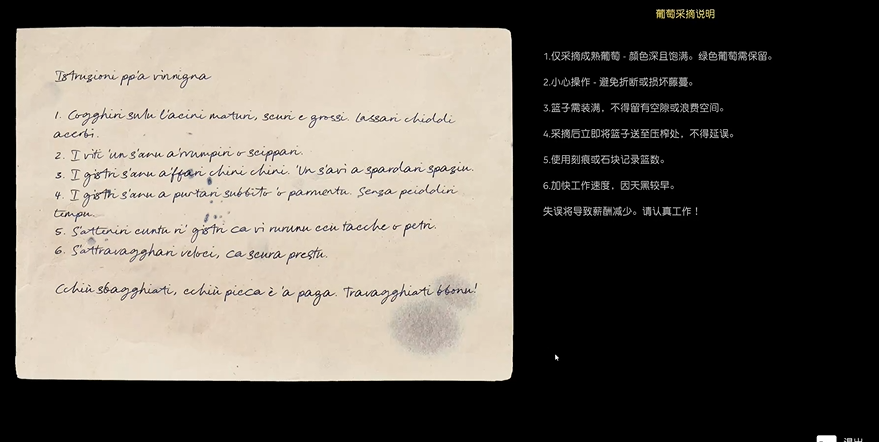 Istruzioni pp'a vinnigna
1. Cogghiri sulu l'acini maturi, scuri e grossi. Lassari chiddi
acerbi.
2. I viti 'un s'anu a rrumpiri o scippari.
3. I gistri s'anu a ffari chini chini. 'Un s'avi a spardari spaziu.
4. I gistri s'anu a purtari subbito 'o parmentu. Senza peiddiri
tempu.
5. S'atteniri cuntu ri' gistri ca vi rurunu ccu tacche o petri.
6. S'attravagghari veloci, ca scura prestu.
Cchiù sbagghiati, cchiù picca è 'a paga. Travagghiati bbonu!
葡萄采摘说明
1.仅采摘成熟葡萄 - 颜色深且饱满。绿色葡萄需保留。
2.小心操作 - 避免折断或损坏藤蔓。
3.篮子需装满，不得留有空隙或浪费空间。
4.采摘后立即将篮子送至压榨处，不得延误。
5.使用刻痕或石块记录篮数。
6.加快工作速度，因天黑较早。
失误将导致薪酬减少。请认真工作！